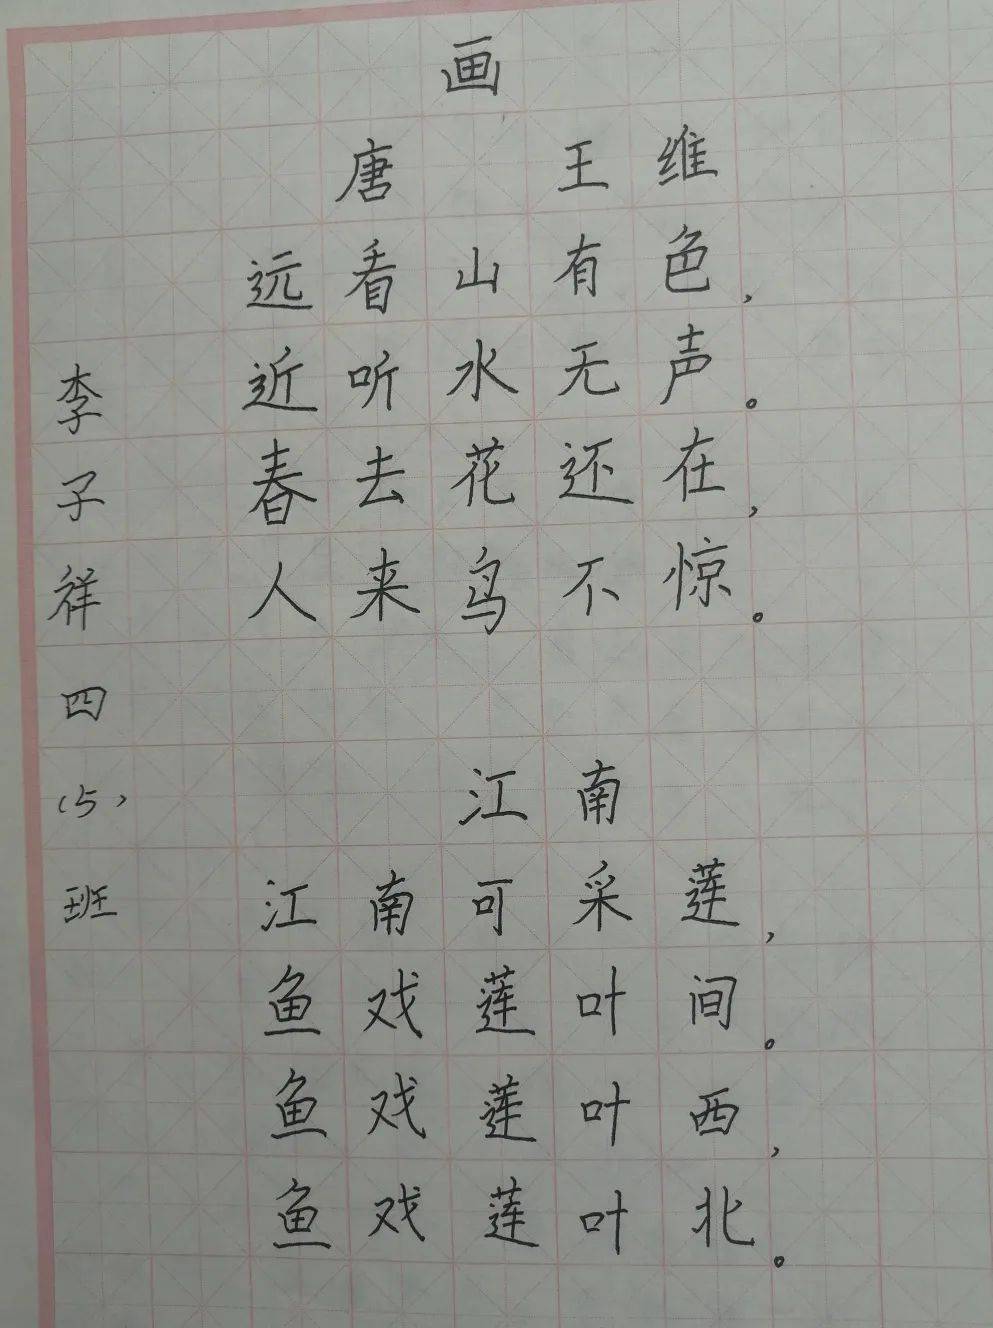 画
唐 王维
远看山有色，
近听水无声。
春去花还在，
人来鸟不惊。
江南
江南可采莲，
鱼戏莲叶间。
鱼戏莲叶西，
鱼戏莲叶北。
李子祥四(5)班